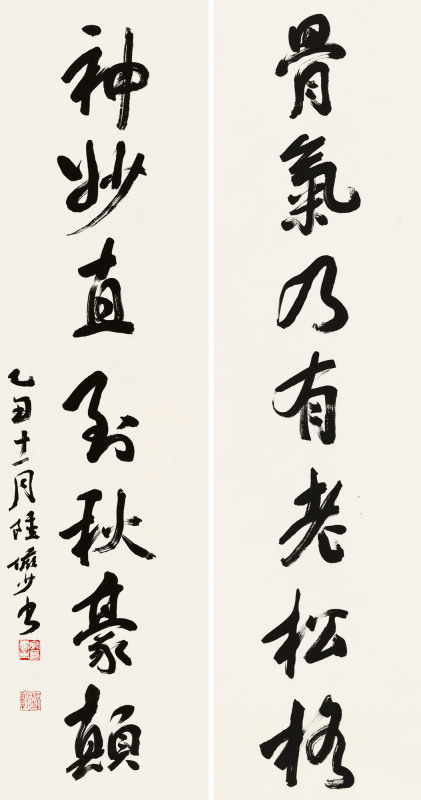 骨氣乃有老松格
神妙直到秋豪顛
乙丑十一月陸儼少書